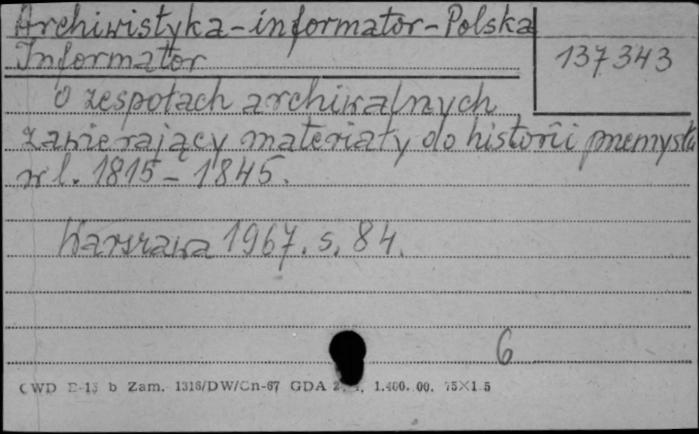 Archiwistyka-informator-Polska
Informator
137343
o zespołach archiwalnych
zawierający materiały do historii przemysłu
w l. 1815-1845.
Warszawa 1967. s. 84.
6
CWD E-15 b Zam. 1316/DW/Cn-67 GDA